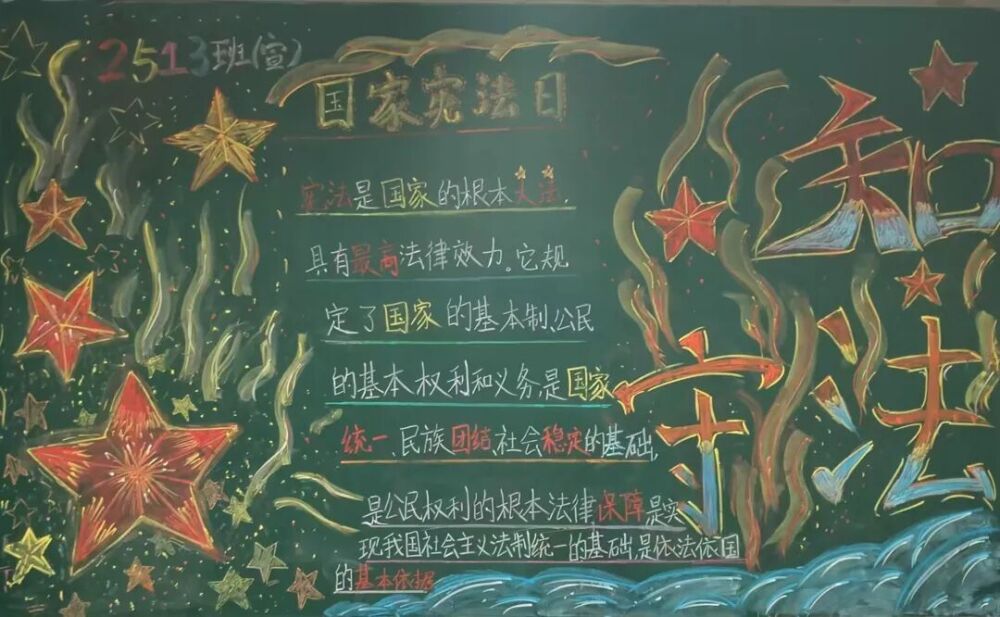 2513班(宣)
国家宪法日
宪法是国家的根本大法,
具有最高法律效力。它规
定了国家的基本制、公民
的基本权利和义务,是国家
统一民族团结,社会稳定的基础,
是公民权利的根本法律保障是实
现我国社会主义法制统一的基础,是依法依国
的基本依据
知
守法